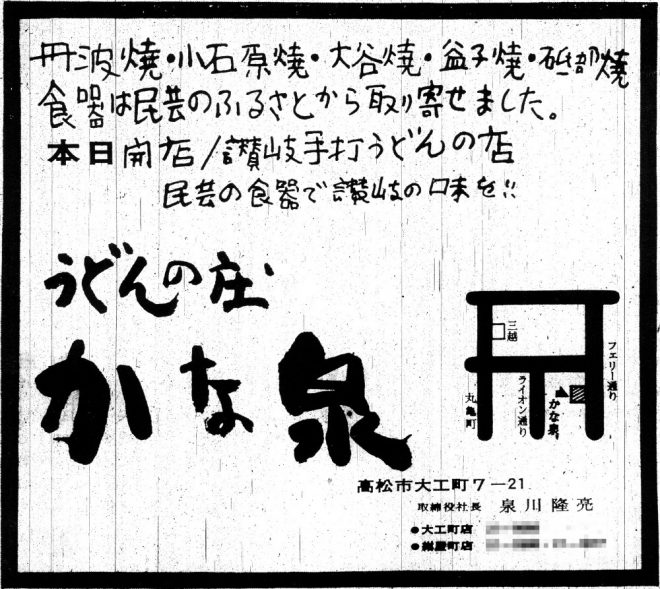 丹波焼・小石原焼・大谷焼・益子焼・砥部焼
食器は民芸のふるさとから取り寄せました。
本日開店/讃岐手打うどんの店
民芸の食器で讃岐の味を!!
うどんの庄
かな泉
三越
フェリー通り
ライオン通り
丸亀町
かな泉
高松市大工町7-21
取締役社長 泉川隆亮
●大工町店
●紺屋町店